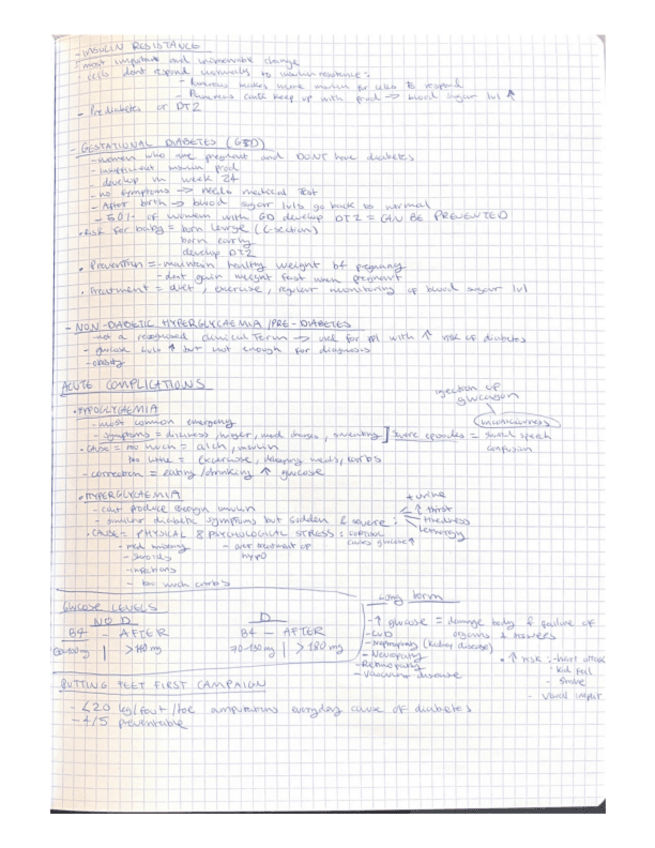 - INSULIN RESISTANCE
- most important and unfavorable change
- cells dont respond normally to insulin resistance:
- Pancreas makes more insulin for cells to respond
- Pancreas cant keep up with prod → blood sugar lvl ↑
- Prediabetes or DT2
- GESTATIONAL DIABETES (GD)
- women who are pregnant and DONT have diabetes
- insufficient insulin prod
- develop in week 24
- no symptoms → needs medical test
- After birth → blood sugar lvls go back to normal
- 50% of women with GD develop DT2 = CAN BE PREVENTED
• Risk for baby = born large (C-section)
born early
develop DT2
• Prevention = - maintain healthy weight b4 pregnancy
- dont gain weight fast when pregnant
• Treatment = diet, exercise, regular monitoring of blood sugar lvl
- NON-DIABETIC HYPERGLYCAEMIA / PRE-DIABETES
- not a recognised clinical term → used for ppl with ↑ risk of diabetes
- glucose lvls ↑ but not enough for diagnosis
- obesity
ACUTE COMPLICATIONS
injection of glucagon
• HYPOGLYCAEMIA
- most common emergency
- symptoms = dizziness, hunger, mood changes, sweating] severe episodes = unconsciousness
slurred speech
confusion
• CAUSE = too much = alch, insulin
too little = excercise, sleeping, meds, carbs
- correction = eating/drinking ↑ glucose
• HYPERGLYCAEMIA
- cant produce enough insulin
- similar diabetic symptoms but sudden & severe:
+ urine
↑ thirst
tiredness
lethargy
• CAUSE = PHYSICAL & PSYCHOLOGICAL STRESS: cortisol causes glucose ↑
- med missing
- over treatment of hypo
- steroids
- infections
- too much carbs
GLUCOSE LEVELS
NO D
D
B4 - AFTER
B4 - AFTER
>140 mg
70-130 mg | >180 mg
Long term
- ↑ glucose = damage body & failure of organs & tissues
- CVD
- Nephropathy (kidney disease)
- Neuropathy
- Retinopathy
- vascular disease
• ↑ risk: - heart attack
- kid fail
- stroke
- visual impair
PUTTING FEET FIRST CAMPAIGN
- <20 leg/foot/toe amputations everyday cause of diabetes
- 4/5 preventable